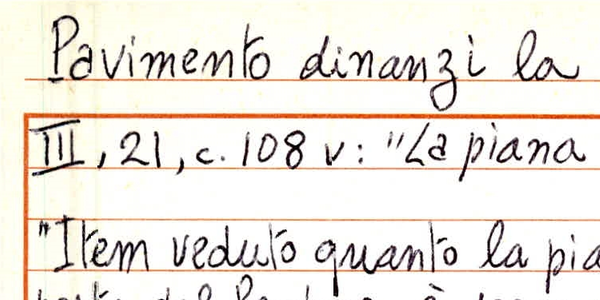 Pavimento dinanzi la
III, 21, c. 108 v: "La piana
"Item veduto quanto la pia